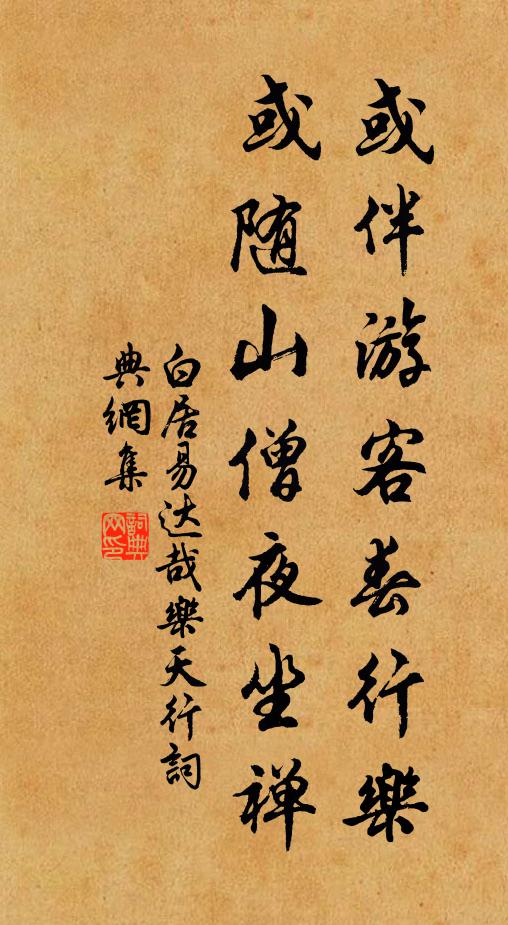 或伴游客春行樂
或随山僧夜坐禅
白居易达哉樂天行詞
典網集
詞典网印